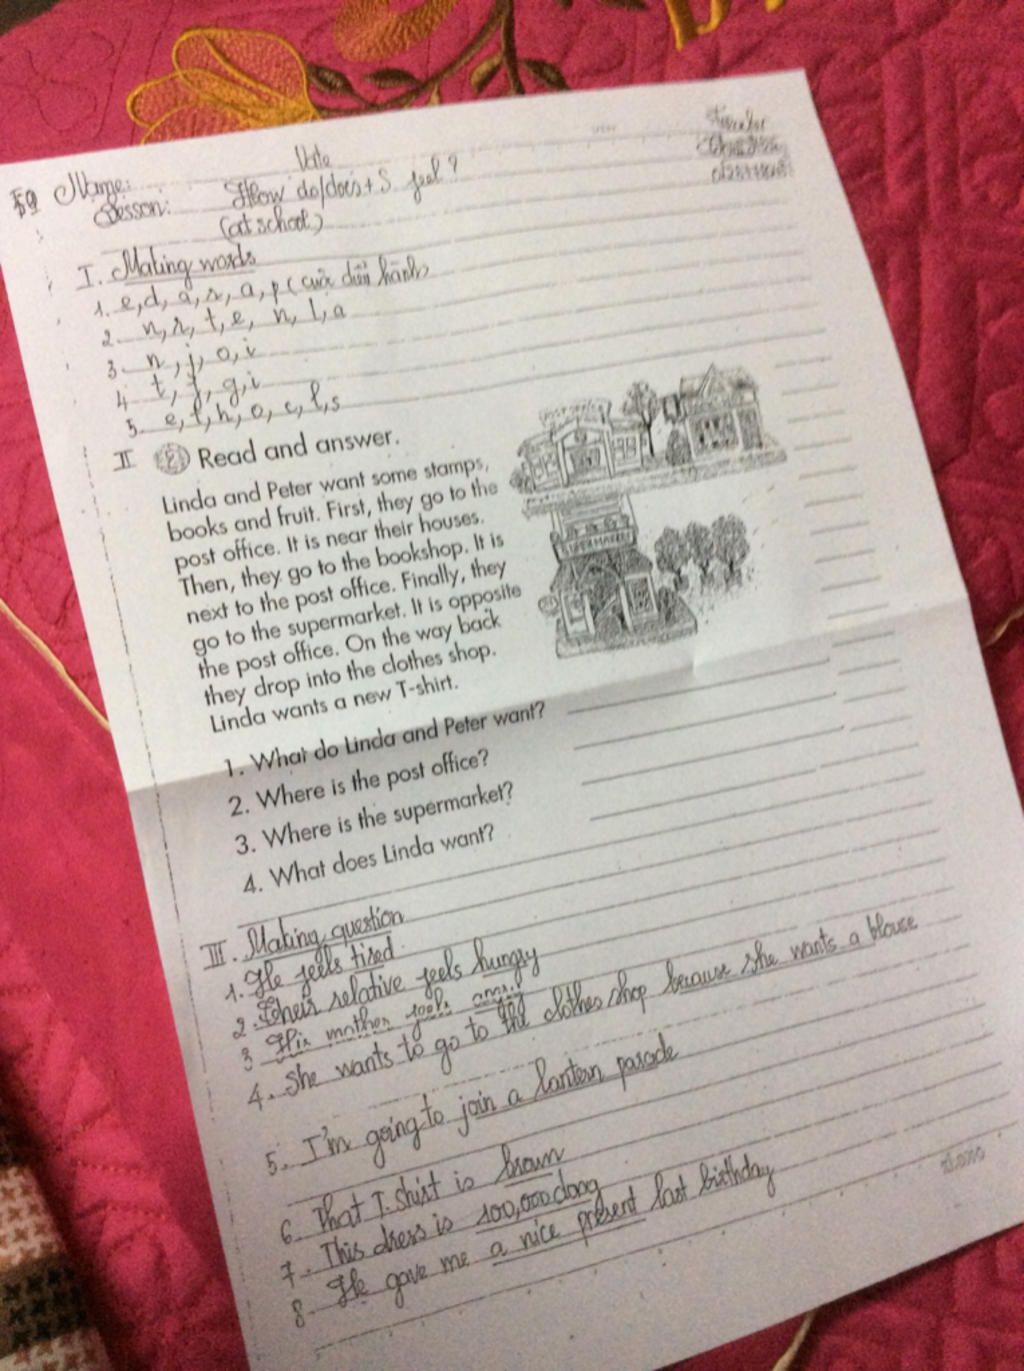 Note
Name:
Lesson: How do/does + S feel?
(at school)
I. Making words
1. e, d, a, r, a, p (cuộc diễu hành)
2. n, r, t, e, n, l, a
3. n, j, o, i
4. t, f, g, i
5. e, t, h, o, c, l, s
II Read and answer.
Linda and Peter want some stamps,
books and fruit. First, they go to the
post office. It is near their houses.
Then, they go to the bookshop. It is
next to the post office. Finally, they
go to the supermarket. It is opposite
the post office. On the way back
they drop into the clothes shop.
Linda wants a new T-shirt.
SUPERMARKET
1. What do Linda and Peter want?
2. Where is the post office?
3. Where is the supermarket?
4. What does Linda want?
III. Making question
1. He feels tired.
2. Their relative feels hungry
3 His mother feels angry
4. She wants to go to the clothes shop because she wants a blouse
5. I'm going to join a lantern parade
6. That T.shirt is brown
7. This dress is 100,000 dong
8. He gave me a nice present last birthday